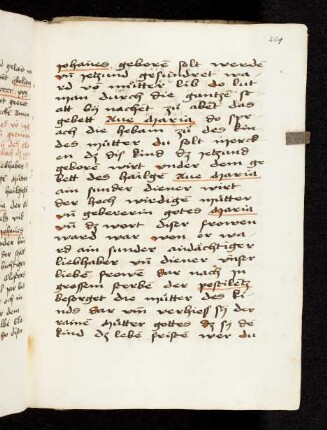 204
johanes geboren solt werde
vn̄ yetzund gesundret wa
rd vō mutter lib do lut
man durch die gantze st
att by nachet zu abet das
gebett Aue Maria do spr
ach die hebam zu des kin
des mutter du solt merck
en dz dis kind dz yetzund
geborē wirt vnder dem ge
bett des hailgē Aue Maria
ain sunder diener wirt
der hoch wirdigē mutter
vn̄ gebererin gotes Maria
vn̄ dz wort diser frowen
ward war won er wa
rd ain sunder andächtiger
liebhaber vn̄ diener vnser
lieben frowē dar nach jn
grossem sterbē der pestiletz
besorget die mutter des ki
nds dar vm̄ verhiess sy der
rainē mutter gottes dz sy de
kind dz lebē fristē wer du